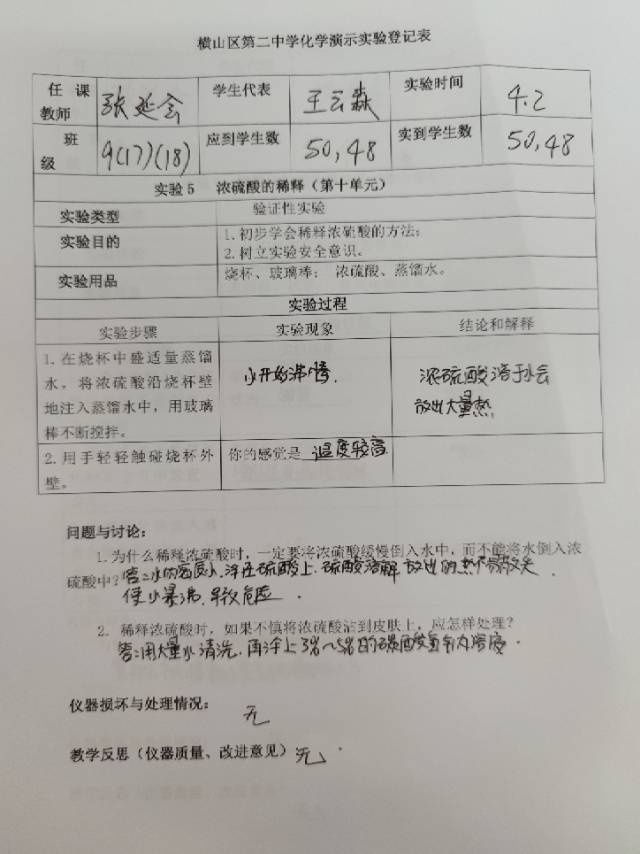 横山区第二中学化学演示实验登记表
任 课 教师 张延会 学生代表 王云森 实验时间 4.2
班 级 9(17)(18) 应到学生数 50,48 实到学生数 50,48
实验5 浓硫酸的稀释（第十单元）
实验类型 验证性实验
实验目的 1.初步学会稀释浓硫酸的方法；
2.树立实验安全意识。
实验用品 烧杯、玻璃棒； 浓硫酸、蒸馏水。
实验过程
实验步骤 实验现象 结论和解释
1.在烧杯中盛适量蒸馏
水，将浓硫酸沿烧杯壁
地注入蒸馏水中，用玻璃
棒不断搅拌。
水开始沸腾.
浓硫酸溶于水会
放出大量热
2.用手轻轻触碰烧杯外
壁。
你的感觉是 温度较高
问题与讨论：
1.为什么稀释浓硫酸时，一定要将浓硫酸缓慢倒入水中，而不能将水倒入浓
硫酸中？答:水的密度小,浮在硫酸上.硫酸溶解放出的热不易散失
使水暴沸.导致危险.
2. 稀释浓硫酸时，如果不慎将浓硫酸沾到皮肤上，应怎样处理？
答:用大量水清洗.再涂上3%~5%的碳酸氢钠溶液.
仪器损坏与处理情况： 无
教学反思（仪器质量、改进意见） 无.